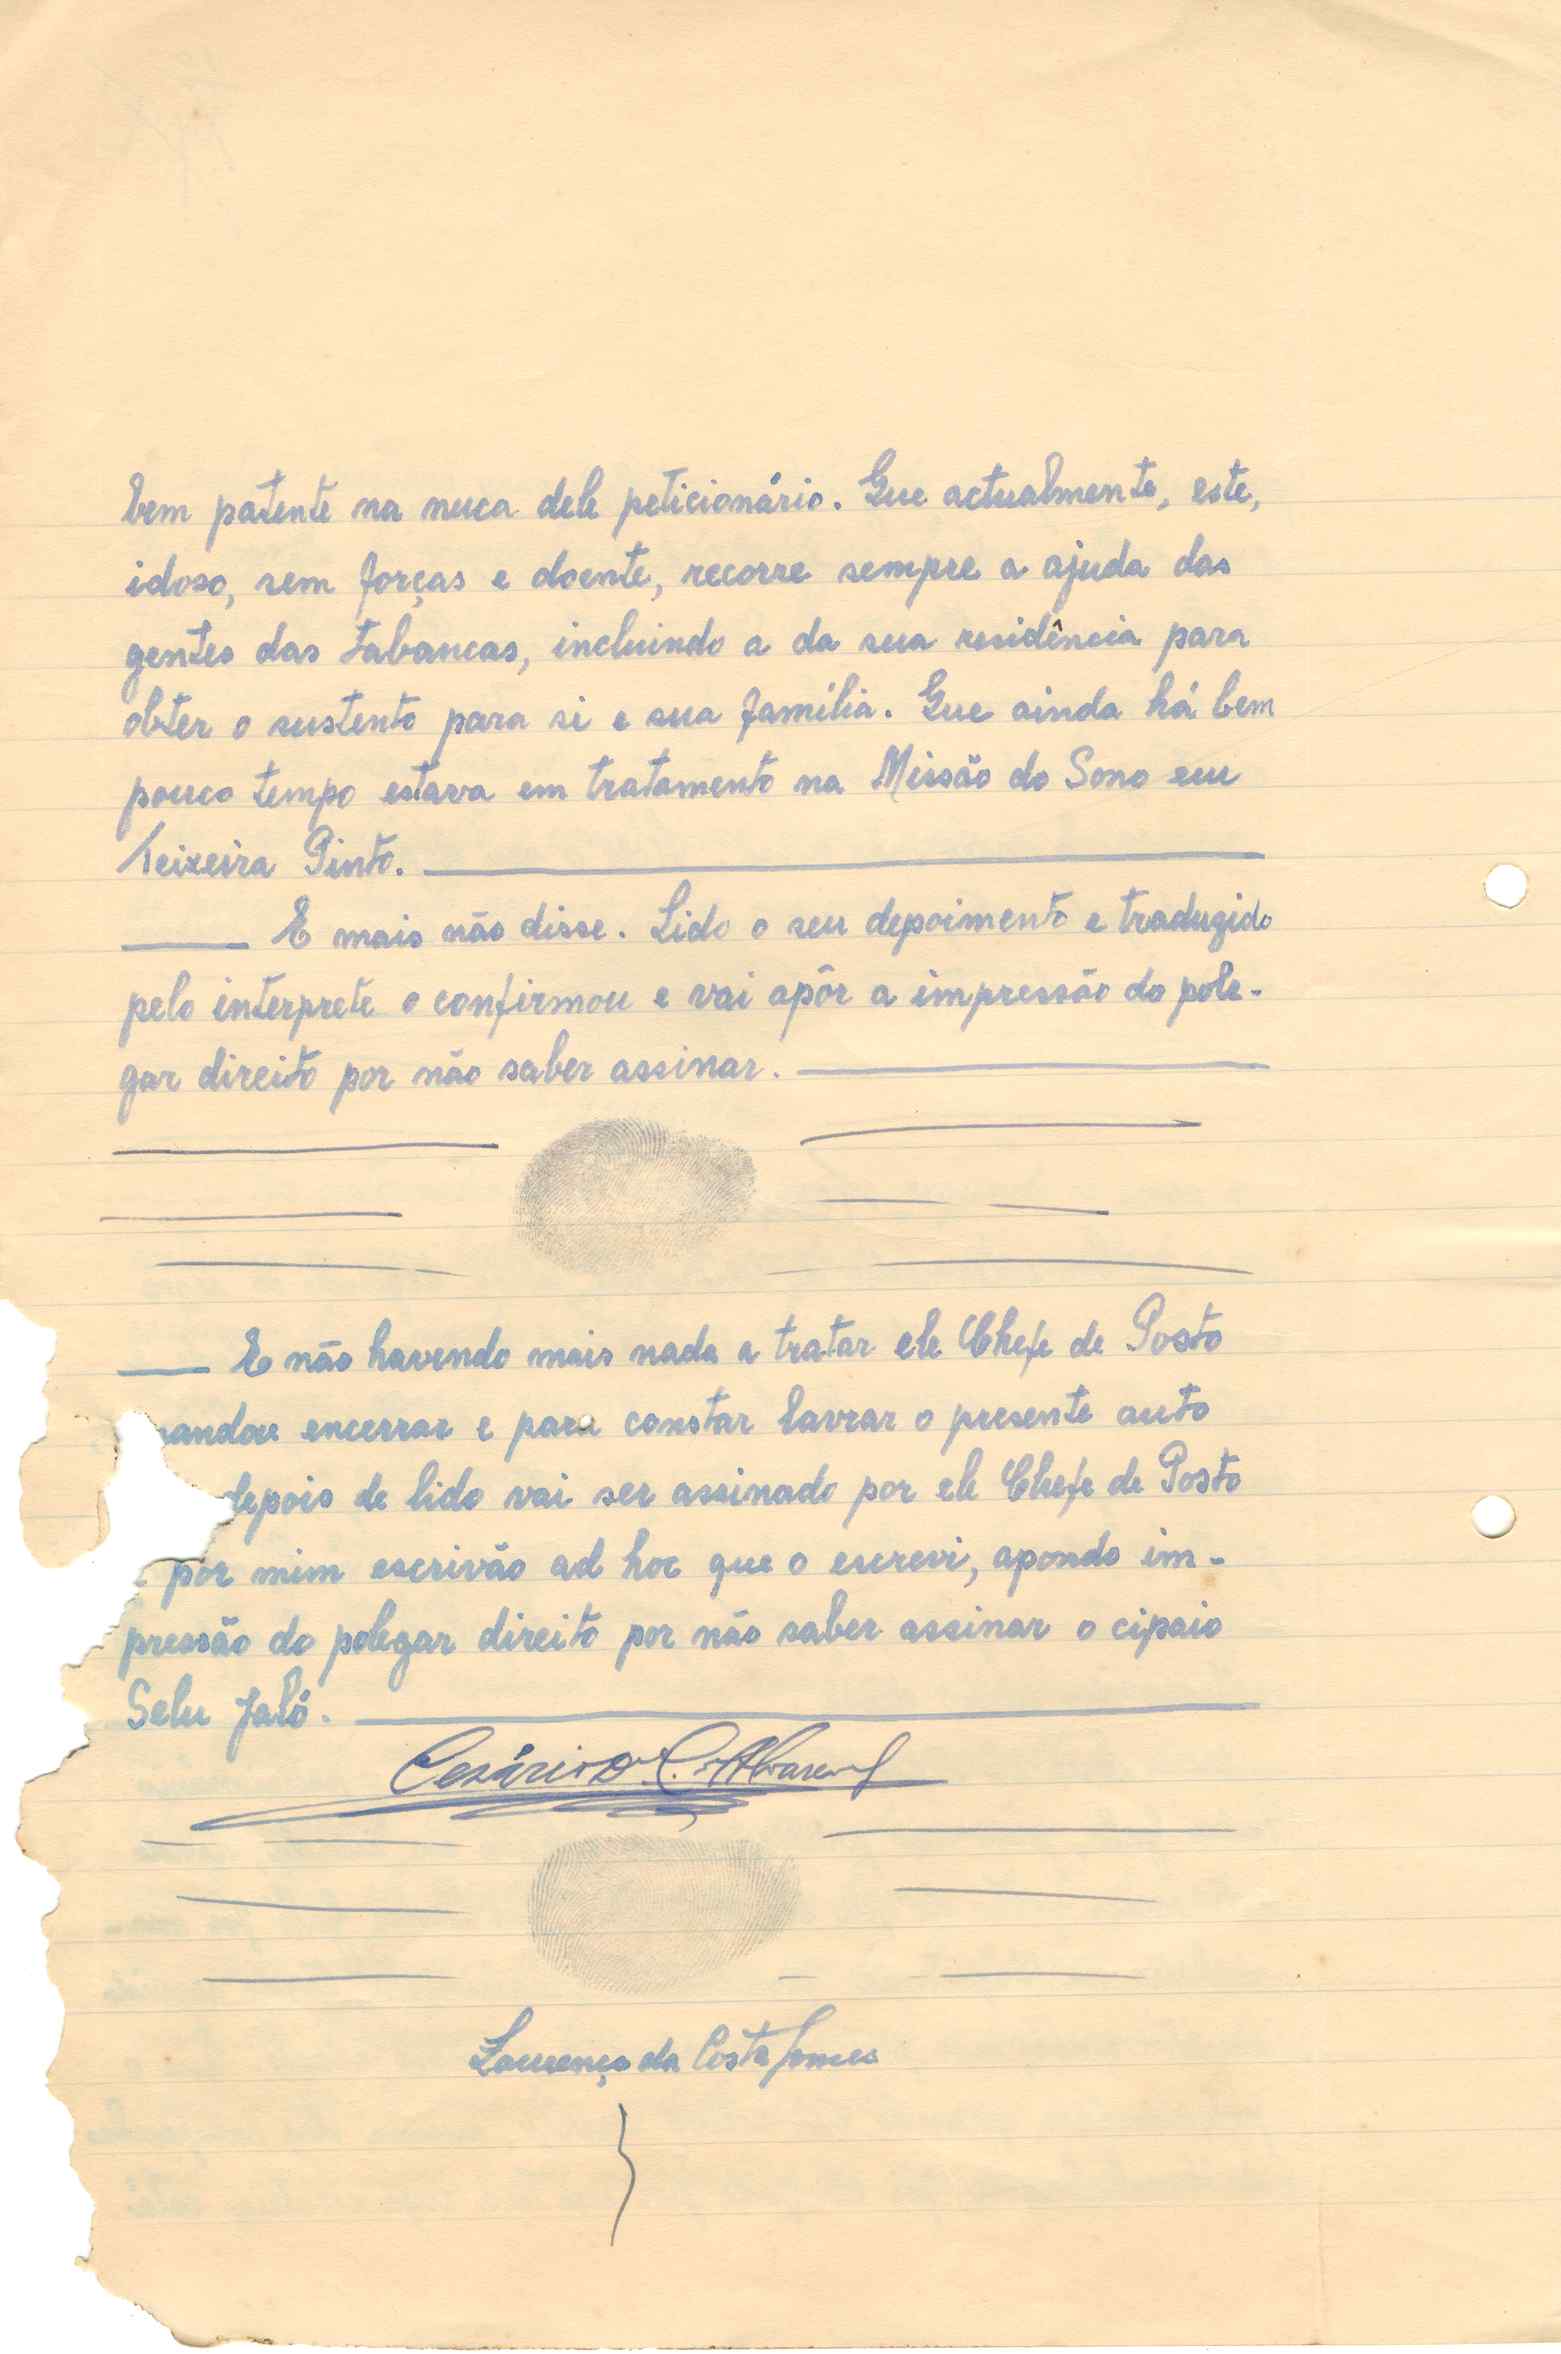 bem patente na nuca dele peticionário. Que actualmente, este,
idoso, sem forças e doente, recorre sempre a ajuda das
gentes das tabancas, incluindo a da sua residência para
obter o sustento para si e sua família. Que ainda há bem
pouco tempo estava em tratamento na Missão do Sono em
Teixeira Pinto.
E mais não disse. Lido o seu depoimento e tradugido
pelo interprete o confirmou e vai apôr a impressão do pole-
gar direito por não saber assinar.
E não havendo mais nada a tratar ele Chefe de Posto
andou encerrar e para constar lavrar o presente auto
depois de lido vai ser assinado por ele Chefe de Posto
e por mim escrivão ad hoc que o escrevi, apondo im-
pressão do polegar direito por não saber assinar o cipaio
Selu Jaló.
Cesário
Lourenço da Costa Gomes